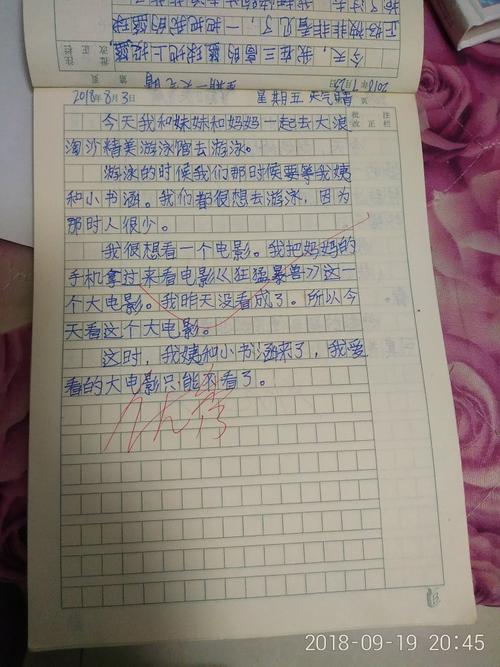 今天,我在三高的篮球地上投篮,
正好被菲菲看见了,一把把我的篮球
批 注
改正栏
2018年7月23日
星期一 天气 晴
页
2018年8月3日
星期五 天气晴
页
批 注
改正栏
今天我和妹妹和妈妈一起去大浪
淘沙精美游泳馆去游泳。
游泳的时候我们那时候要等我姨
和小书涵。我们都很想去游泳,因为
那时人很少。
我很想看一个电影。我把妈妈的
手机拿过来看电影《狂猛暴兽》这一
个大电影。我昨天没看成了。所以今
天看这个大电影。
这时,我姨和小书涵来了,我爱
看的大电影只能不看了。
优秀
2018-09-19 20:45